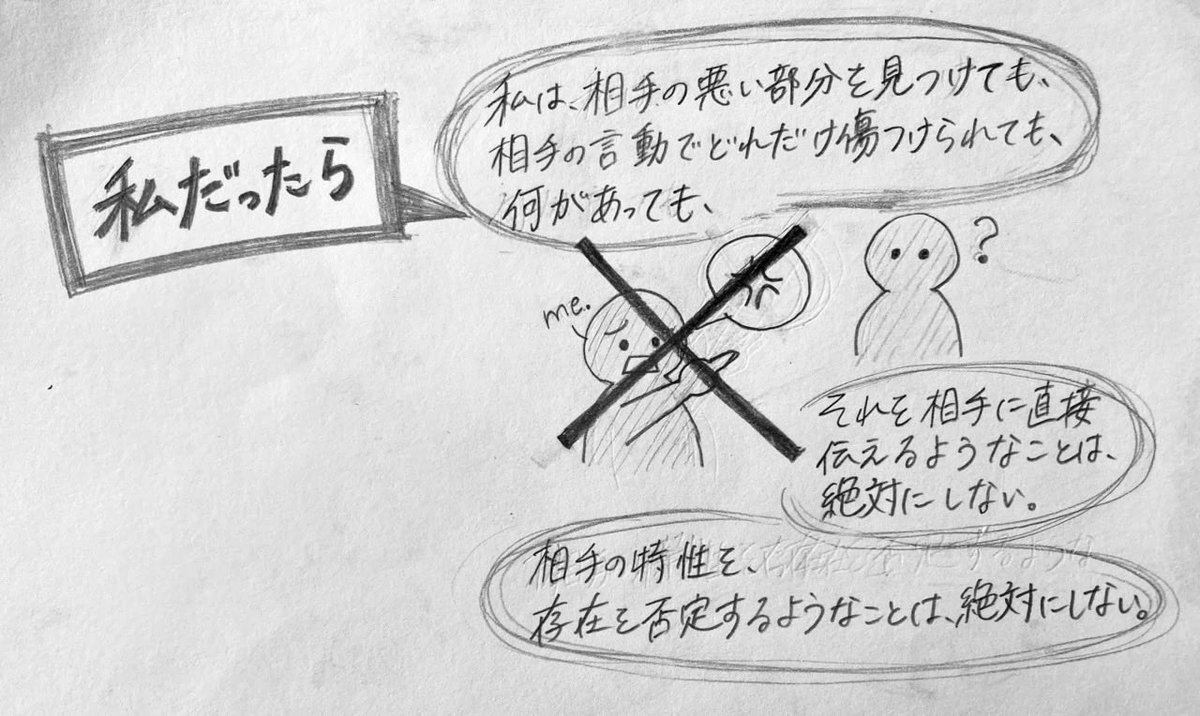 私だったら
私は、相手の悪い部分を見つけても、
相手の言動でどれだけ傷つけられても、
何があっても、
me.
?
それを相手に直接
伝えるようなことは、
絶対にしない。
相手の特性を、
存在を否定するようなことは、絶対にしない。